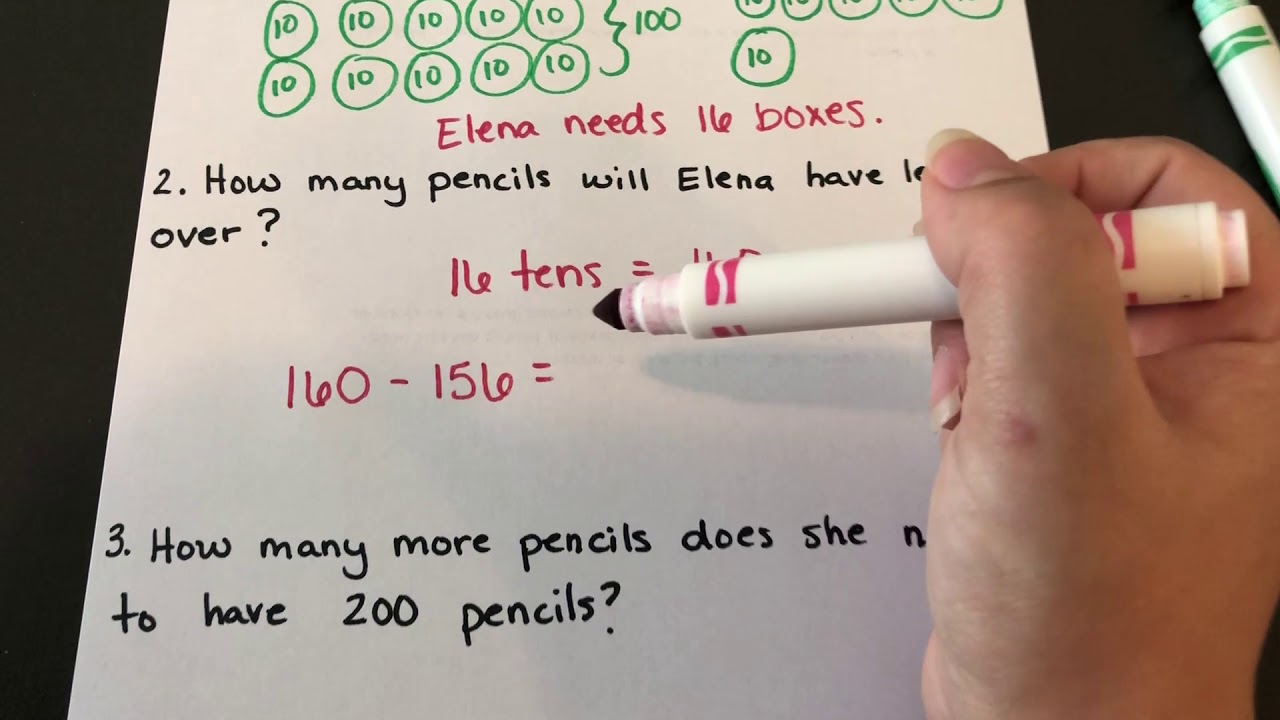 10 10 10 10 10 100
10 10 10 10 10 10
Elena needs 16 boxes.
2. How many pencils will Elena have
over?
16 tens =
160 - 156 =
3. How many more pencils does she
to have 200 pencils?